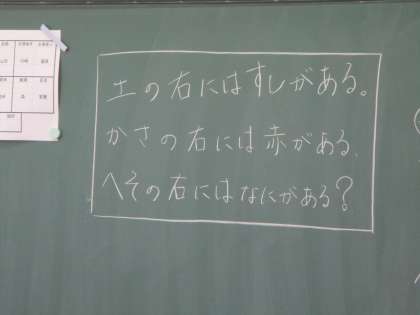 土の右にはすしがある。
かさの右には赤がある、
へその右にはなにがある?